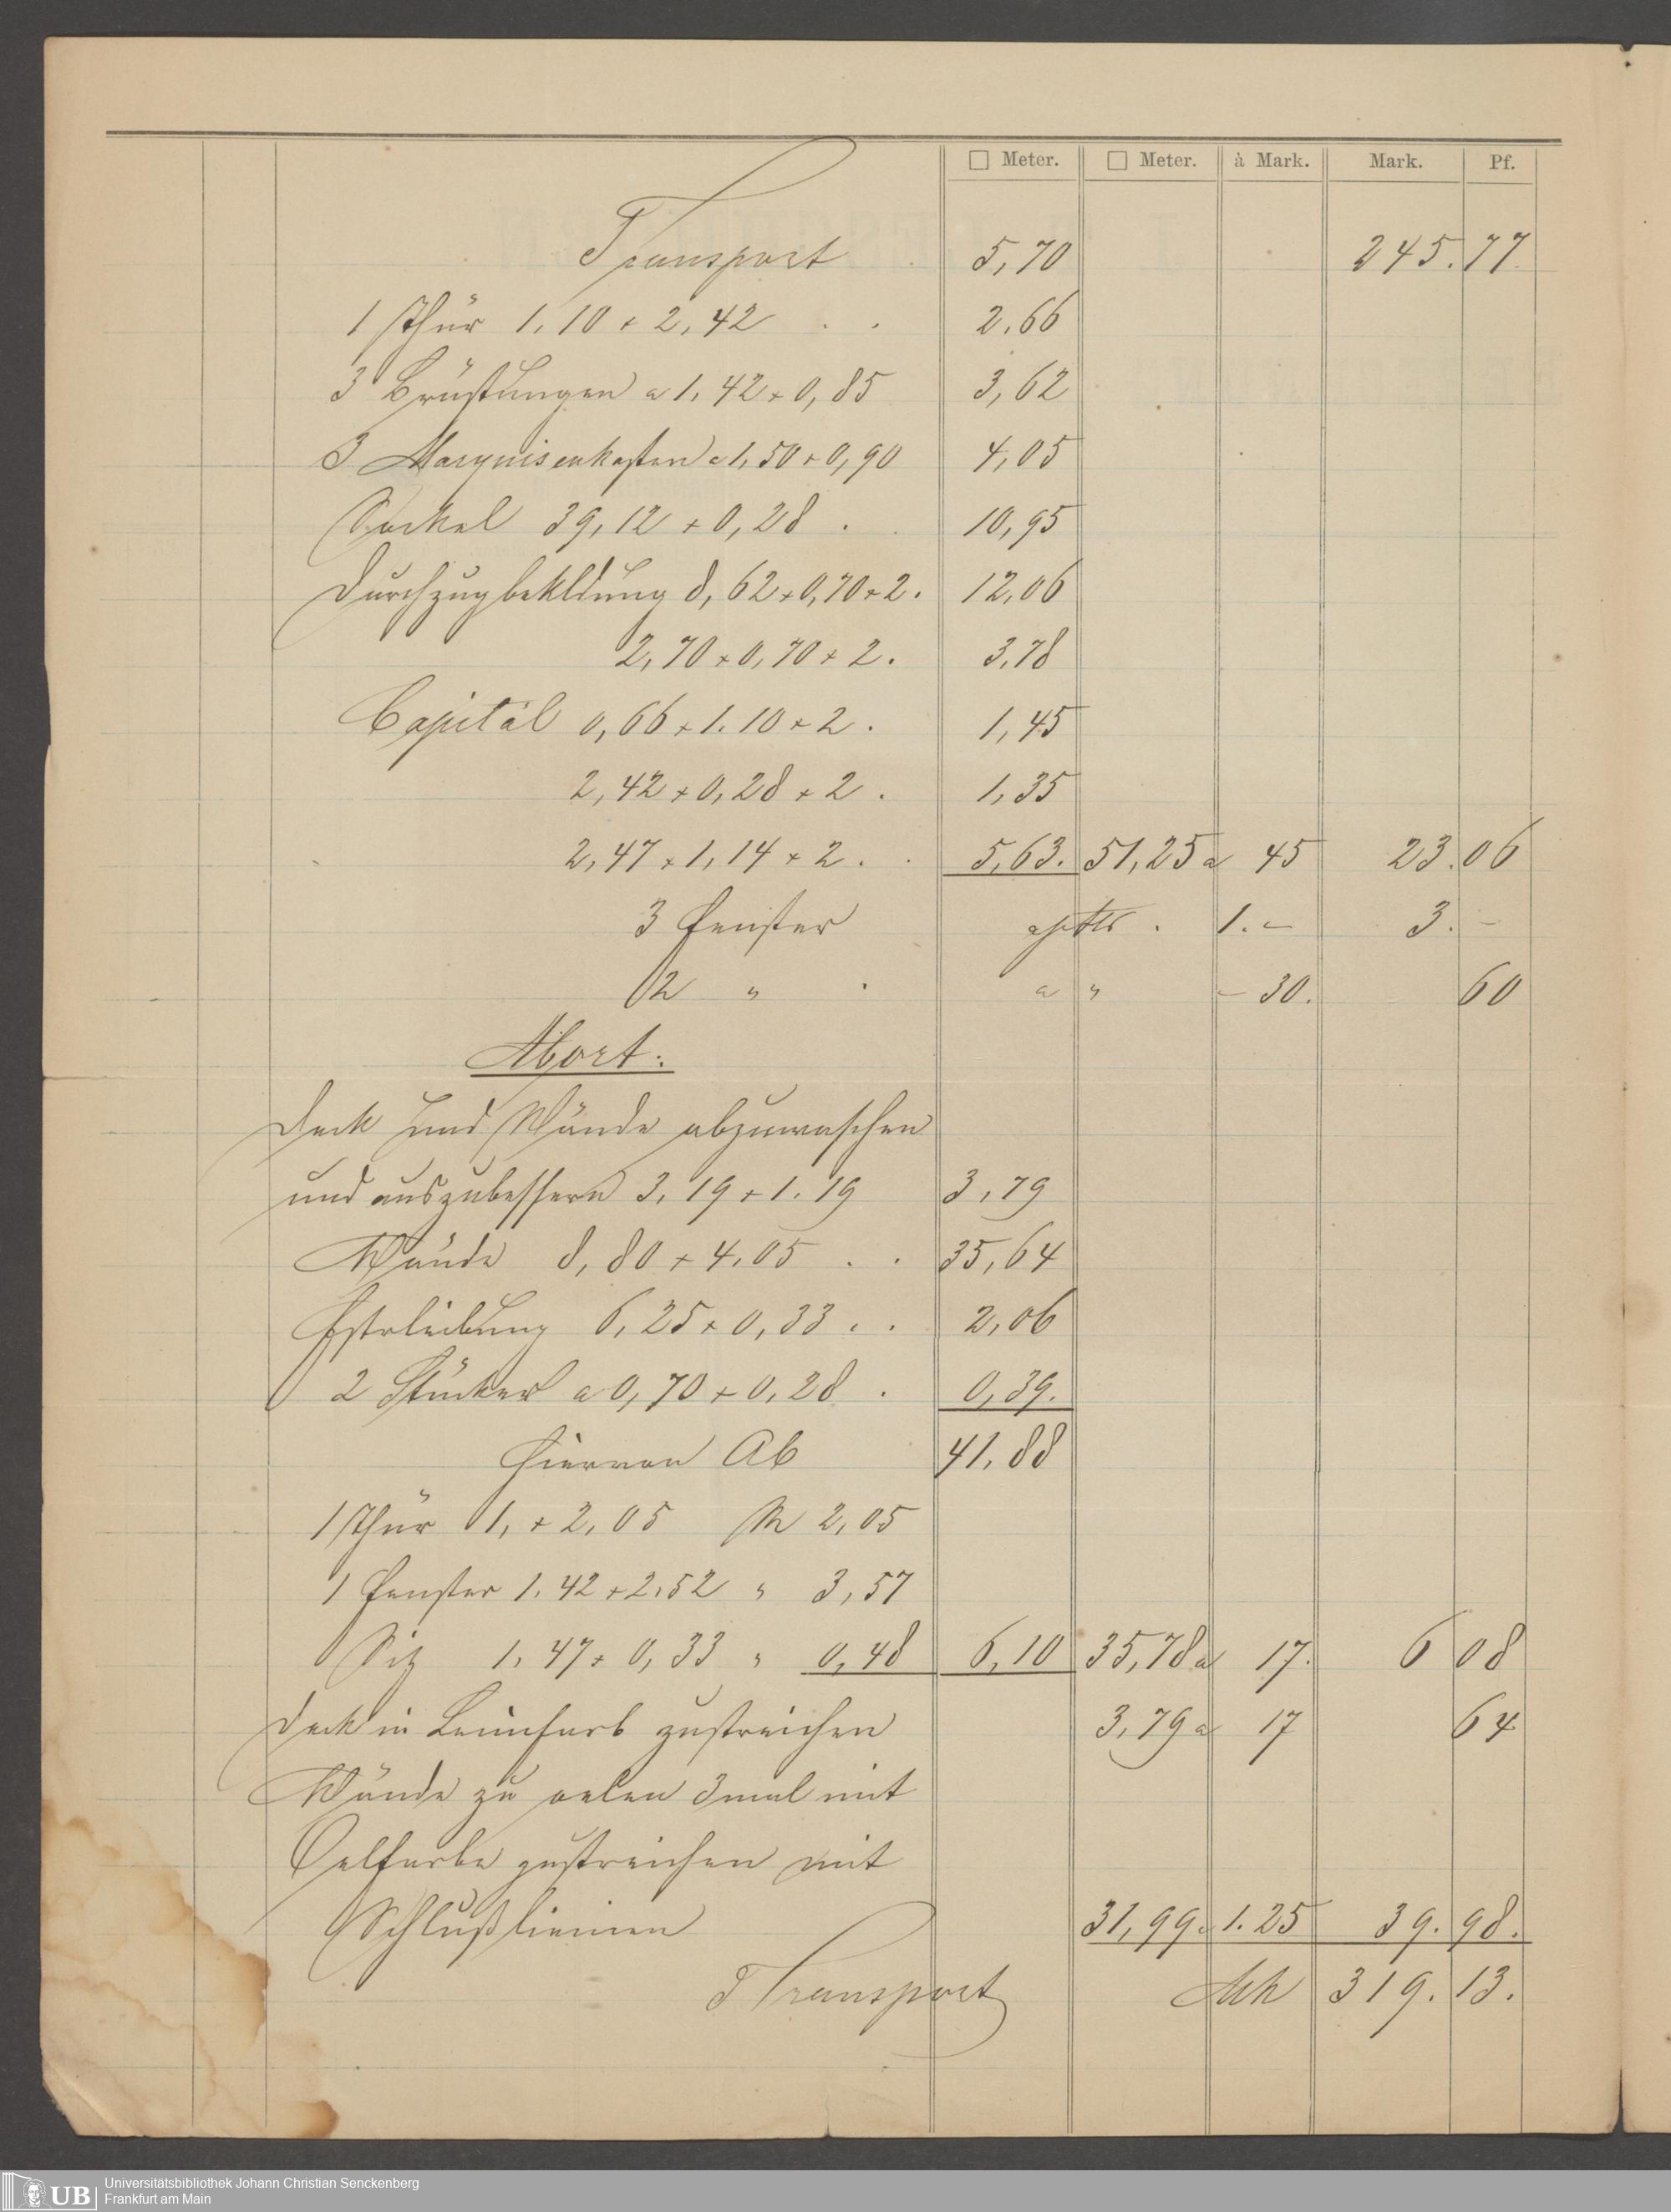 □ Meter. □ Meter. à Mark. Mark. Pf.
Transport 5,70 245. 77.
1 Thür 1,10 × 2,42 . . 2,66
3 Brüstungen a 1,42 × 0,85 3,62
3 Marquisenkasten a 1,50 × 0,90 4,05
Sockel 39,12 × 0,28 . 10,95
Durchzugbekldung 8,62 × 0,70 × 2. 12,06
2,70 × 0,70 × 2. 3,78
Capitäl 0,66 × 1.10 × 2. 1,45
2,42 × 0,28 × 2. 1,35
2,47 × 1,14 × 2. . 5,63. 51,25 a 45 23. 06
3 Fenster 1.– 3. –
2 " . a " – 30. 60
Abort:
Deck und Wände abzuwaschen
und auszubessern 3,19 × 1.19 3,79
Wände 8,80 × 4,05 . . 35,64
Fstrleibung 6,25 × 0,33 . . 2,06
2 Stücker a 0,70 × 0,28 . 0,39.
Hiervon Ab 41,88
1 Thür 1, × 2,05 M 2,05
1 Fenster 1.42 × 2,52 " 3,57
Siz 1,47 × 0,33 " 0,48 6,10 35,78 a 17. 6 08
Deck in Leimfarb zustreichen 3,79 a 17 64
Wände zu oelen 3mal mit
Oelfarbe zustreichen mit
Schlußlinien 31,99 a 1.25 39. 98.
Transport Mk 319. 13.
UB Universitätsbibliothek Johann Christian Senckenberg
Frankfurt am Main